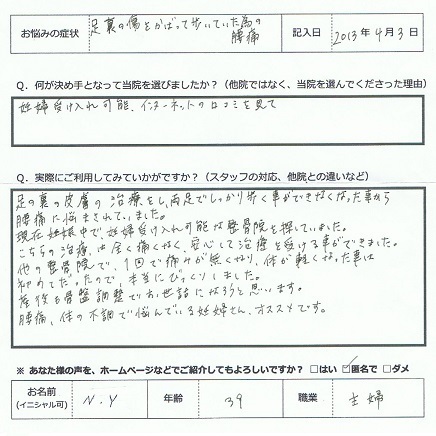 お悩みの症状 足裏の傷をかばって歩いていた為の 記入日 2013年4月3日
腰痛
Q. 何が決め手となって当院を選びましたか?(他院ではなく、当院を選んでくださった理由)
妊婦受け入れ可能、インターネットの口コミを見て
Q. 実際にご利用してみていかがですか?(スタッフの対応、他院との違いなど)
足の裏の皮膚の治療をし、両足でしっかり歩く事ができなくなった事から
腰痛に悩まされていました。
現在妊娠中で、妊婦受け入れ可能な整骨院を探していました。
こちらの治療は全く痛くなく、安心して治療を受ける事ができました。
他の整骨院で、1回で痛みが無くなり、体が軽くなった事は
初めてだったので、本当にびっくりしました。
産後も骨盤調整でお世話になろうと思います。
腰痛、体の不調で悩んでいる妊婦さん、オススメです。
※ あなた様の声を、ホームページなどでご紹介してもよろしいですか? □はい ☑匿名で □ダメ
お名前 N.Y 年齢 39 職業 主婦
(イニシャル可)